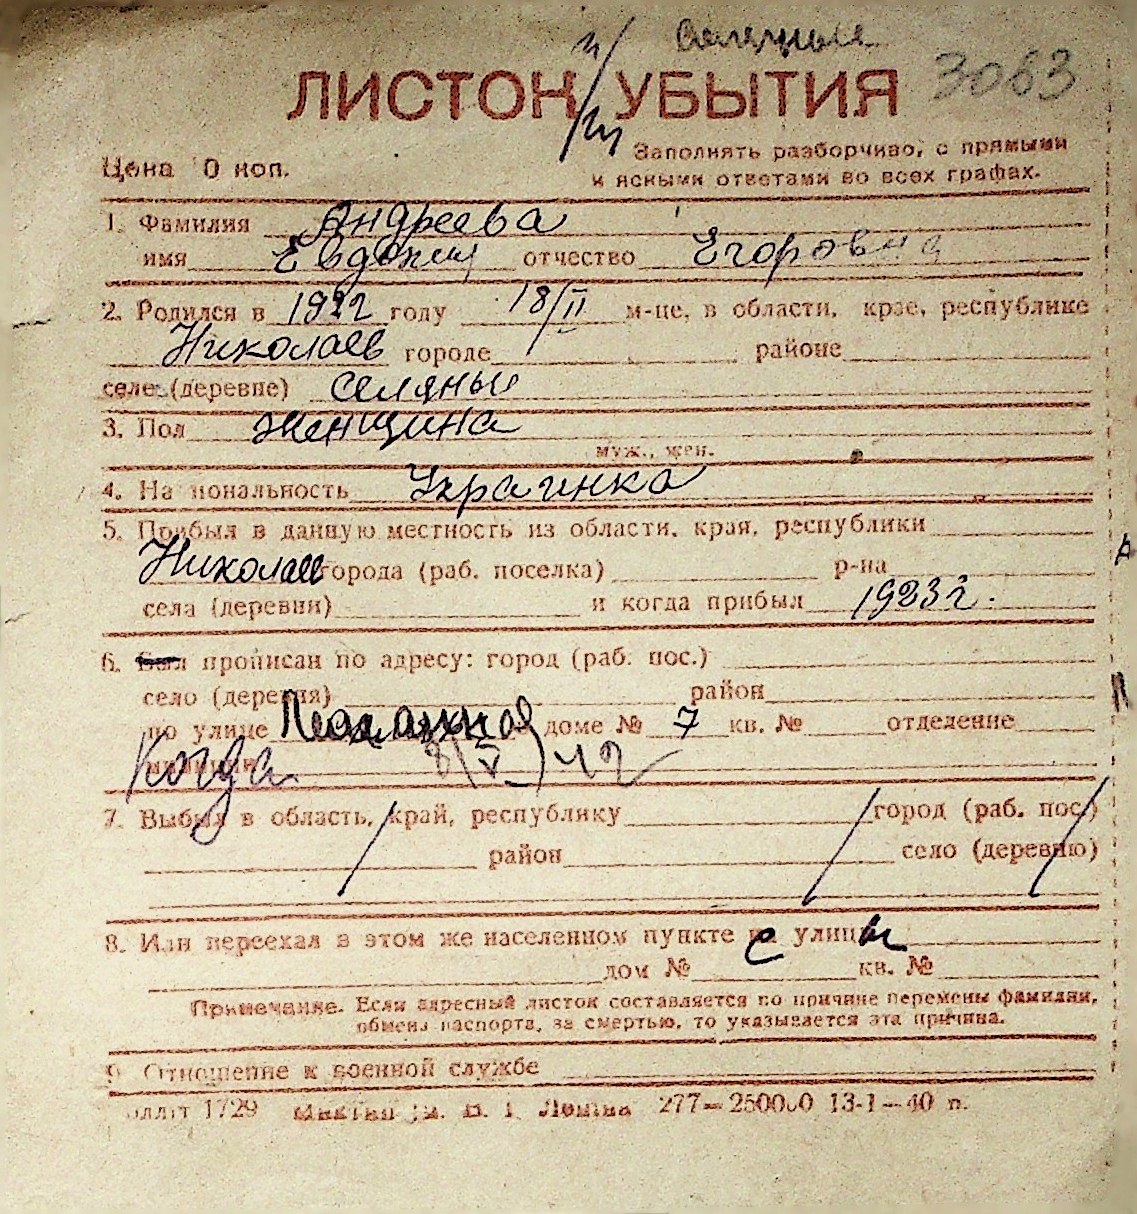 3063
ЛИСТОК УБЫТИЯ
Цена 0 коп.
Заполнять разборчиво, с прямыми
и ясными ответами во всех графах.
1. Фамилия Андреева
имя Евдокия отчество Егоровна
2. Родился в 1922 году 18/II м-це, в области, крае, республике
Николаев городе районе
селе (деревне) селяны
3. Пол женщина
муж., жен.
4. На иональность Украинка
5. Прибыл в данную местность из области, края, республики
Николаев города (раб. поселка) р-на
села (деревни) и когда прибыл 1923 г.
6. Был прописан по адресу: город (раб. пос.)
село (деревня) район
по улице доме № 7 кв. № отделение
Когда 8/V 42
7. Выбыл в область, край, республику город (раб. пос.)
район село (деревню)
8. Или переехал в этом же населенном пункте с улицы
дом № кв. №
Примечание. Если адресный листок составляется по причине перемены фамилии,
обмена паспорта, за смертью, то указывается эта причина.
9. Отношение к военной службе
1729 Ленина 277—250000 13-1—40 п.